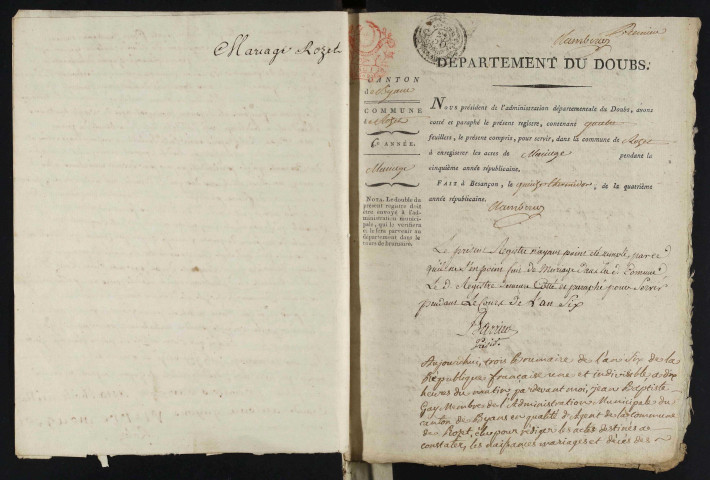 Mariage Rozet
Rambour Premier
DÉPARTEMENT DU DOUBS.
CANTON
de Byans
COMMUNE
de Rozet
6e ANNÉE.
Mariage
NOTA. Le double du
présent registre doit
être envoyé à l'ad-
ministration munici-
pale, qui le vérifiera
et le fera parvenir au
département dans le
mois de brumaire.
NOUS président de l'administration départementale du Doubs, avons
cotté et paraphé le présent registre, contenant quatre
feuillets, le présent compris, pour servir, dans la commune de Rozet
à enregistrer les actes de Mariage pendant la
cinquième année républicaine.
FAIT à Besançon, le quinze thermidor, de la quatrième
année républicaine.
Le présent Registre n'ayant point été remplie, par ce
qu'il ne s'en point fait de Mariage dans la d. Commune
Le d. Registre Cotté et paraphé pour Servir
pendant Le Cours de L'an Six
présidt.
Aujourd'hui, trois Brumaire de l'an Six de la
République française une et indivisible, a dix
heures du matin par devant moi, jean Baptiste
Gay Membre de l'Administration Municipale du
canton de Byans en qualité d'Agent de la commune
de Rozet, élu pour rédiger les actes destinés a
constater, les naissances mariages et décès des